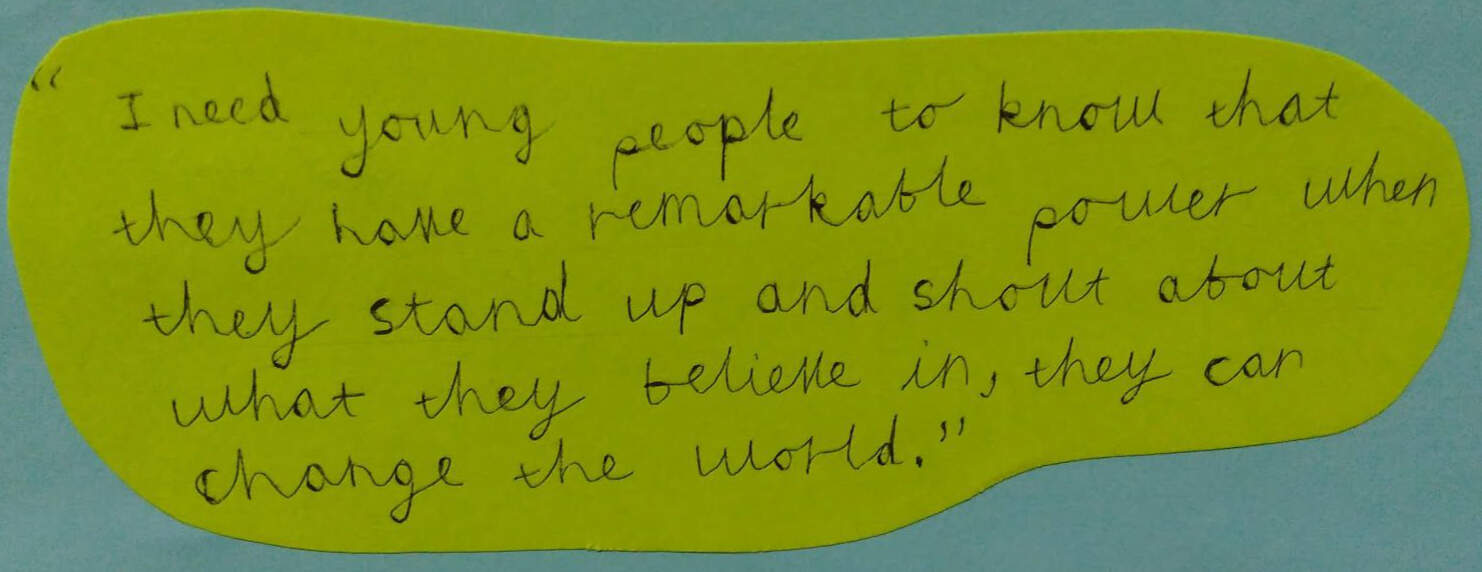 “ I need young people to know that
they have a remarkable power when
they stand up and shout about
what they believe in, they can
change the world.”